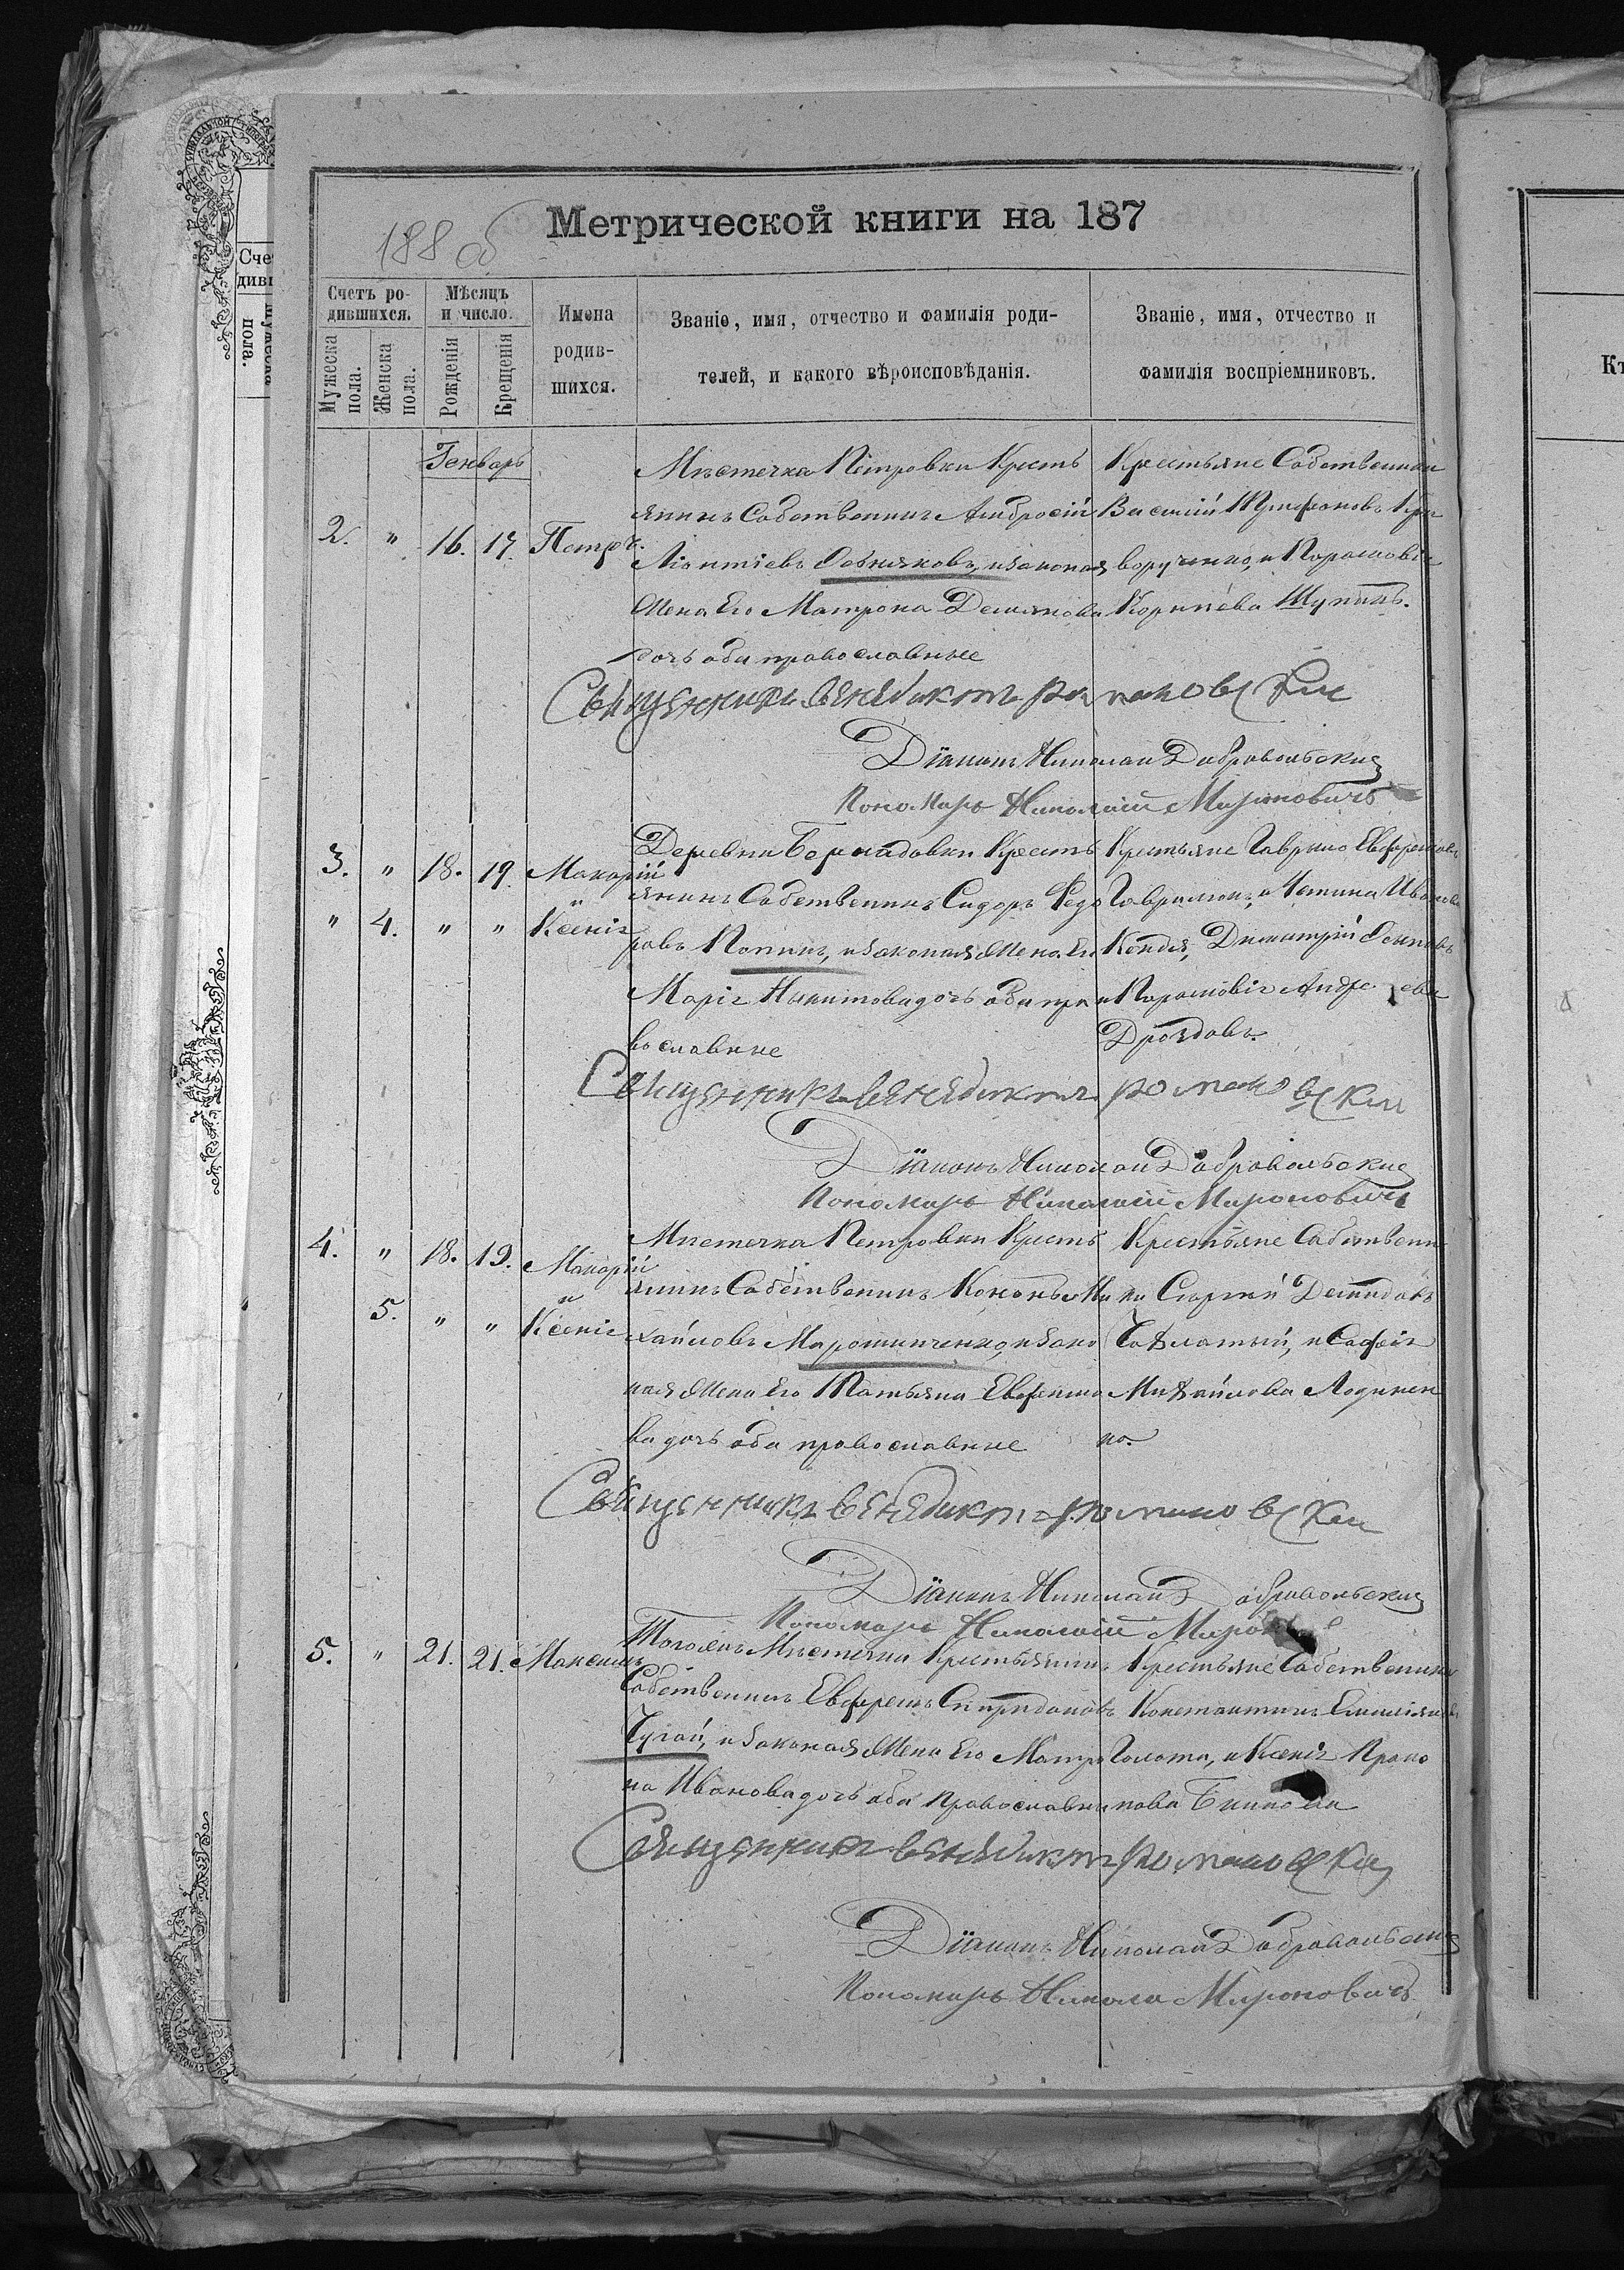 188 об
Метрической книги на 187
Счетъ родившихся.
Мужеска пола.
Женска пола.
Мѣсяцъ и число.
Рожденія
Крещенія
Имена родившихся.
Званіе, имя, отчество и фамилія родителей, и какого вѣроисповѣданія.
Званіе, имя, отчество и фамилія воспріемниковъ.
Генварь
2. " 16. 17. Петръ.
Мѣстечка Петровки Кресть
янинъ Собственникъ Амбросій
Леонтіевъ и законная
Жена Его Матрона Демянова
дочь оба православные
Крестьяне Собственники
Василій Трифоновъ
и Парасковія
Корніева Шупикъ.
Священникъ Венедиктъ Романовскій
Діаконъ Николай Добровольскій
Пономарь Николай Мироновичъ
3. " 18. 19. Макарій
и
" 4. " " Ксенія
Деревни Бернадовки Кресть
янинъ Собственникъ Сидоръ Федо
ровъ Попикъ, и законная Жена Его
Марія Никитова дочь оба пра
вославные
Крестьяне Гаврило Евфремовъ
Гаврилюкъ, и Устина Иванова
Кондря, Димитрій Осиповъ
и Парасковія Андреева
Дроздовъ.
Священникъ Венедиктъ Романовскій
Діаконъ Николай Добровольскій
Пономарь Николай Мироновичъ
4. " 18. 19. Макарій
и
5. " " Ксенія
Мѣстечка Петровки Кресть
янинъ Собственникъ Кононъ Ми
хайловъ Мирошниченко, и зако
ная Жена Его Татьяна Евфимо
ва дочь оба православные
Крестьяне Собственни
ки Георгій Демидовъ
и Софія
Михайлова Лодинен
ко.
Священникъ Венедиктъ Романовскій
Діаконъ Николай Добровольскій
Пономарь Николай
5. " 21. 21. Максимъ
Тогожъ Мѣстечка Крестьянинъ
Собственникъ Евфремъ Спиридоновъ
Чугай, и законная Жена Его Матро
на Иванова дочь оба Православны
Крестьяне Собственники
Константинъ Емиліановъ
Голота, и Ксенія Проко
пова
Священникъ Венедиктъ Романовскій
Діаконъ Николай Добровольскій
Пономарь Николай Мироновичъ